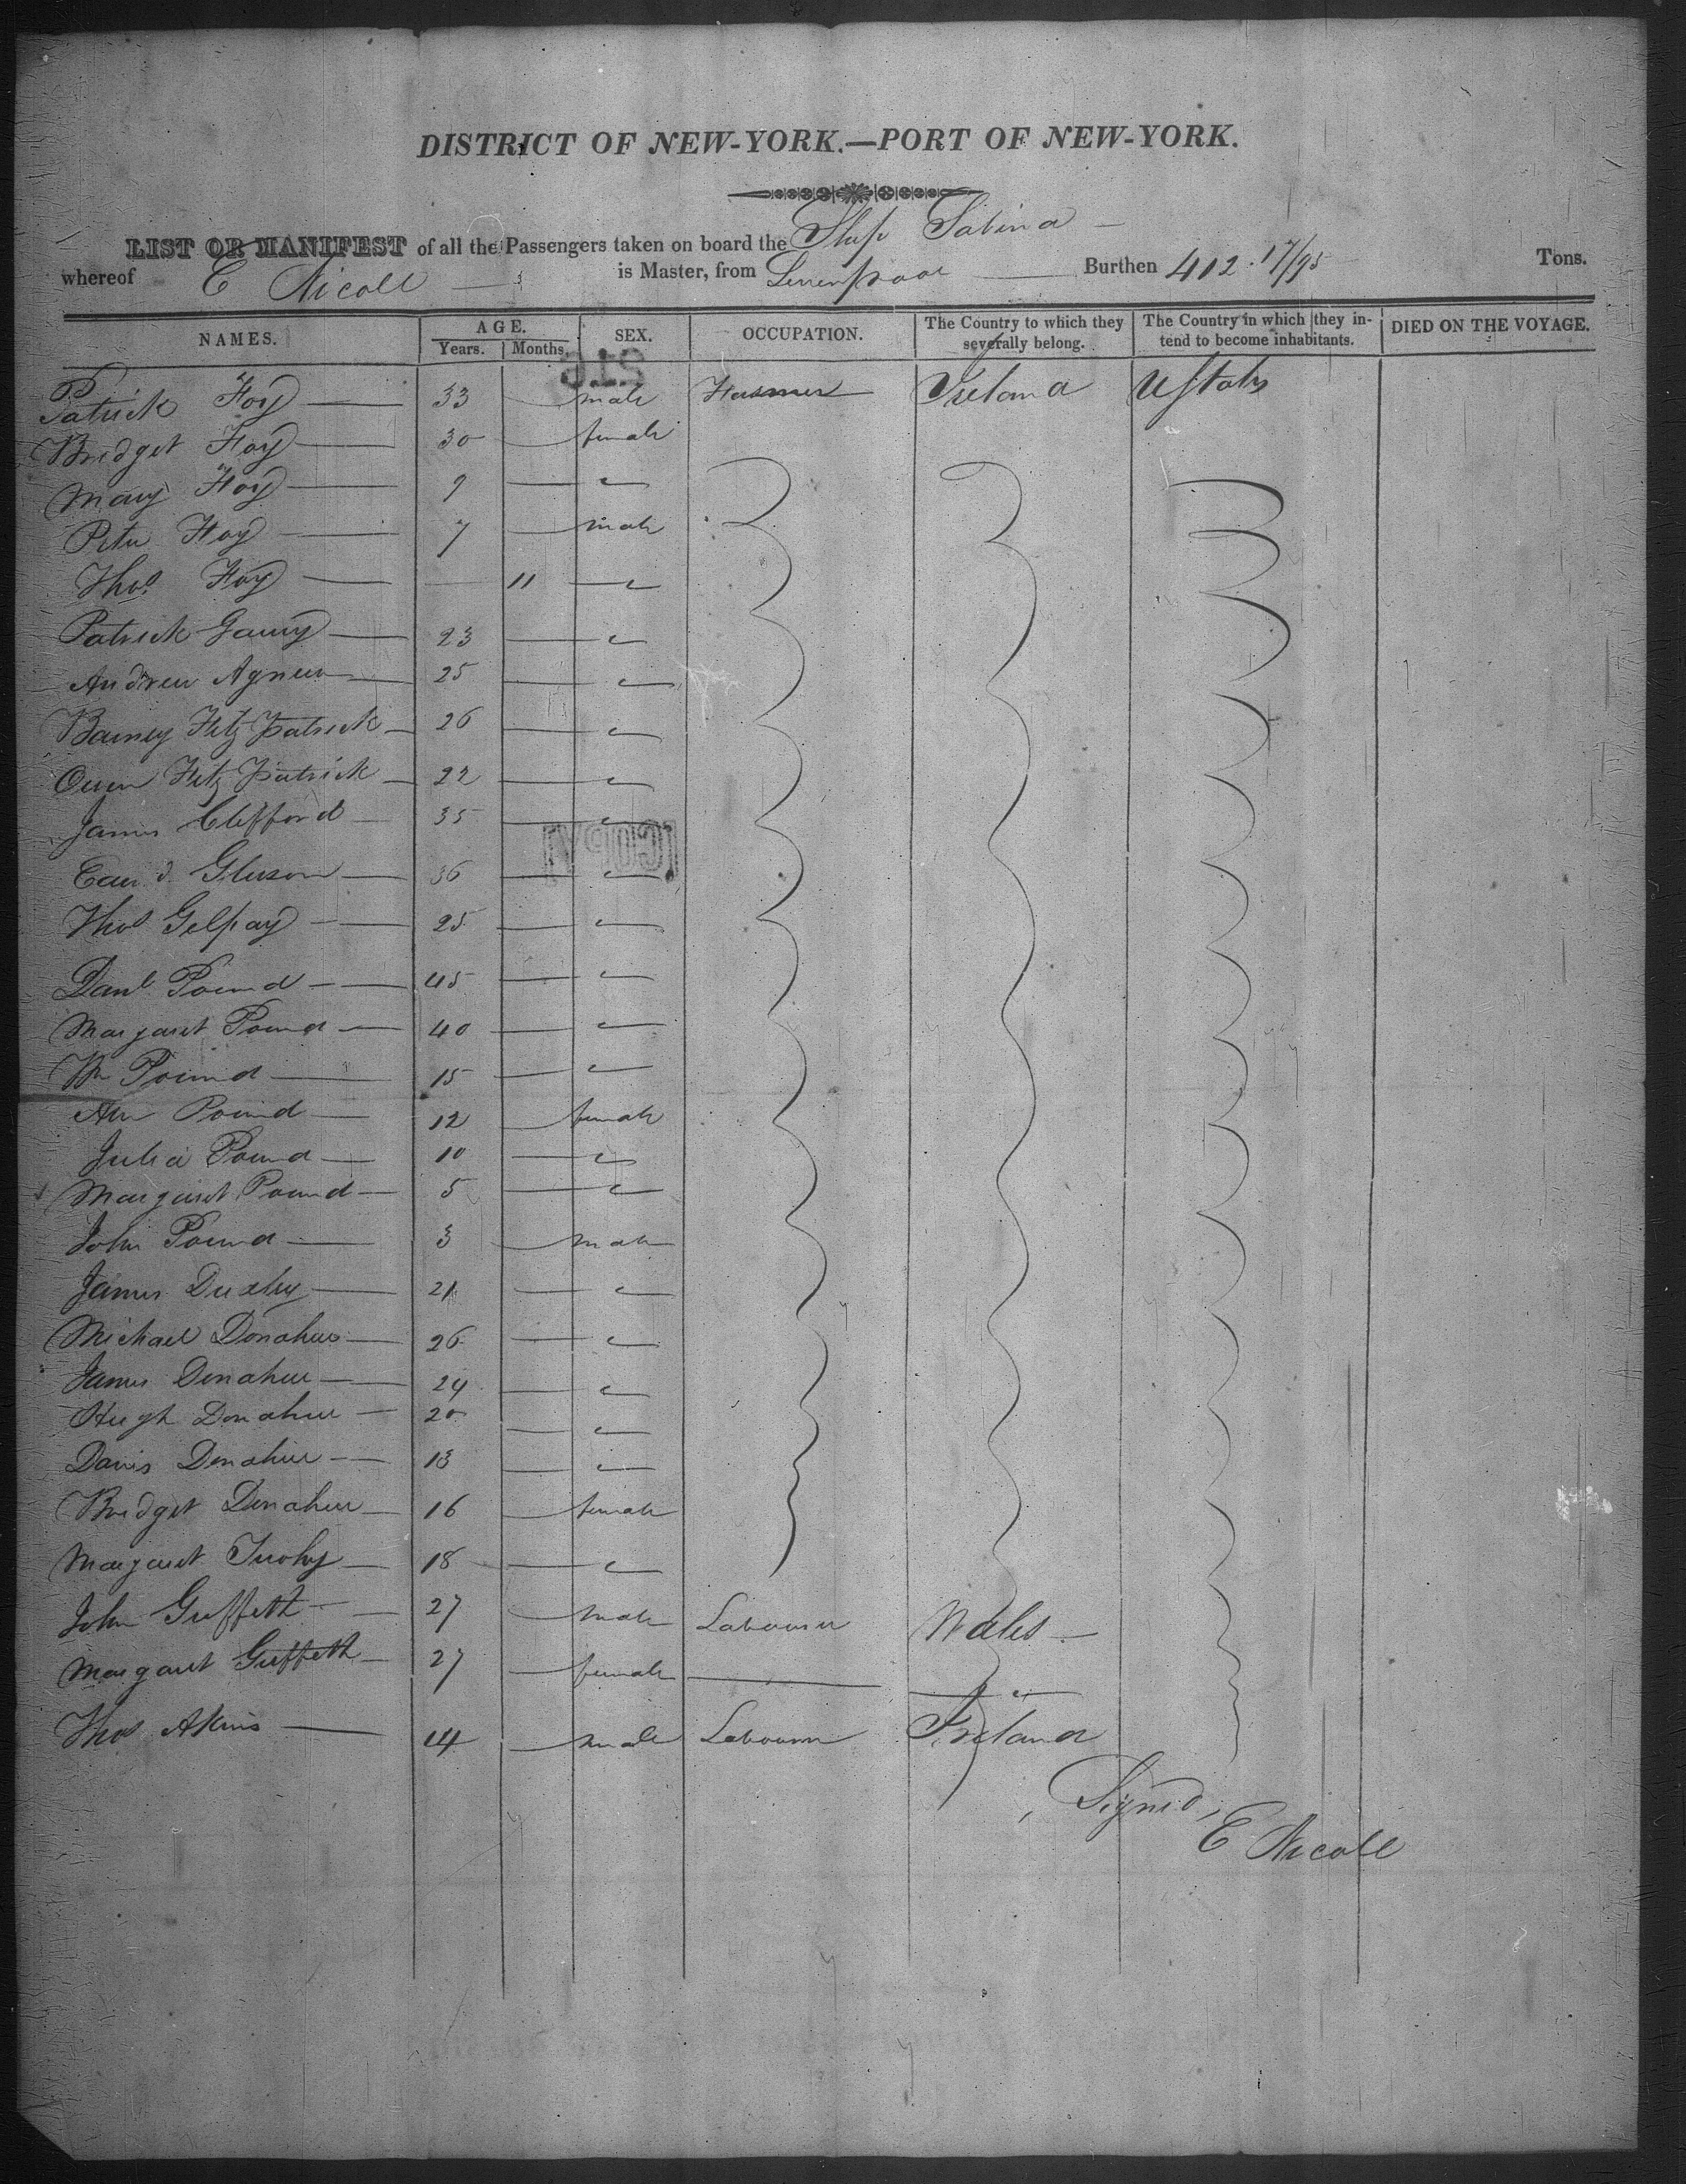 DISTRICT OF NEW-YORK.—PORT OF NEW-YORK.
LIST OR MANIFEST of all the Passengers taken on board the Ship Sabina
whereof E Nicoll is Master, from Liverpool Burthen 412 17/95 Tons.
NAMES. AGE. SEX. OCCUPATION. The Country to which they severally belong. The Country in which they intend to become inhabitants. DIED ON THE VOYAGE.
Years. Months.
Patrick Foy 33 male Farmer Ireland UStates
Bridget Foy 30 female
Mary Foy 9 "
Peter Foy 7 male
Thos. Foy 11 "
Patrick 23 "
Andrew Agnew 25 "
Barney Fitz Patrick 26 "
Owen Fitz Patrick 22 "
James Clifford 35 "
Gleeson 36 "
Thos 25 "
Danl. Pound 45 "
Margaret Pound 40 "
Wm Pound 15 "
Ann Pound 12 female
Julia Pound 10 "
Margaret Pound 5 "
John Pound 3 male
James 21 "
Michael Donahue 26 "
James Donahue 24 "
Hugh Donahue 20 "
Donahue 13 "
Bridget Donahue 16 female
Margaret Tuohy 18 "
John Griffeth 27 male Labourer Wales
Margaret Griffeth 27 female "
Thos Akins 14 male Labourer Ireland
Signed,
E Nicoll
COPY